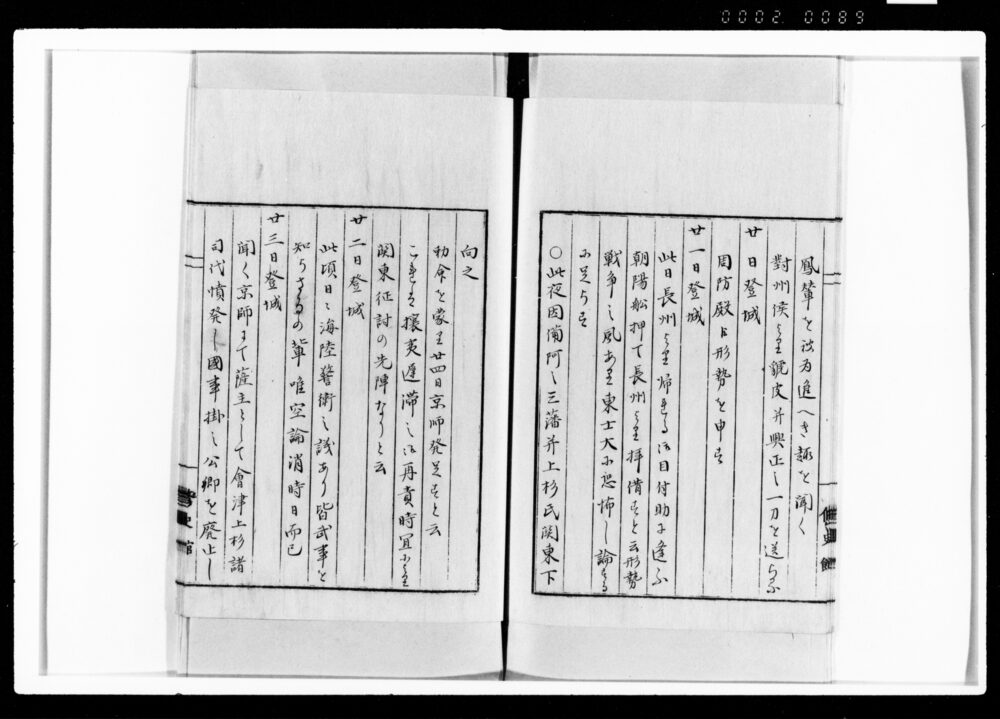 0002 0089
鳳輦を泣為進へき趣を聞く
對州侯より貂皮并興正之一刀を送らる
廿日登城
周防殿江形勢を申す
廿一日登城
此日長州より帰れる御目付助に逢ふ
朝陽船押て長州より拝借すと云形勢
戦争之風あり東士大に恐怖し論する
に足らす
○此夜因備阿之三藩并上杉氏関東下
向之
勅命を蒙り廿四日京師発足すと云
これは攘夷遅滞之御再責時宜により
関東征討の先陣ならんと云
廿二日登城
此頃日々海陸警衛之議あり皆武事を
知らさるの輩唯空論消時日而已
廿三日登城
聞く京師にて薩主として會津上杉諸
司代憤発し國事掛之公卿を廃止し
修史館